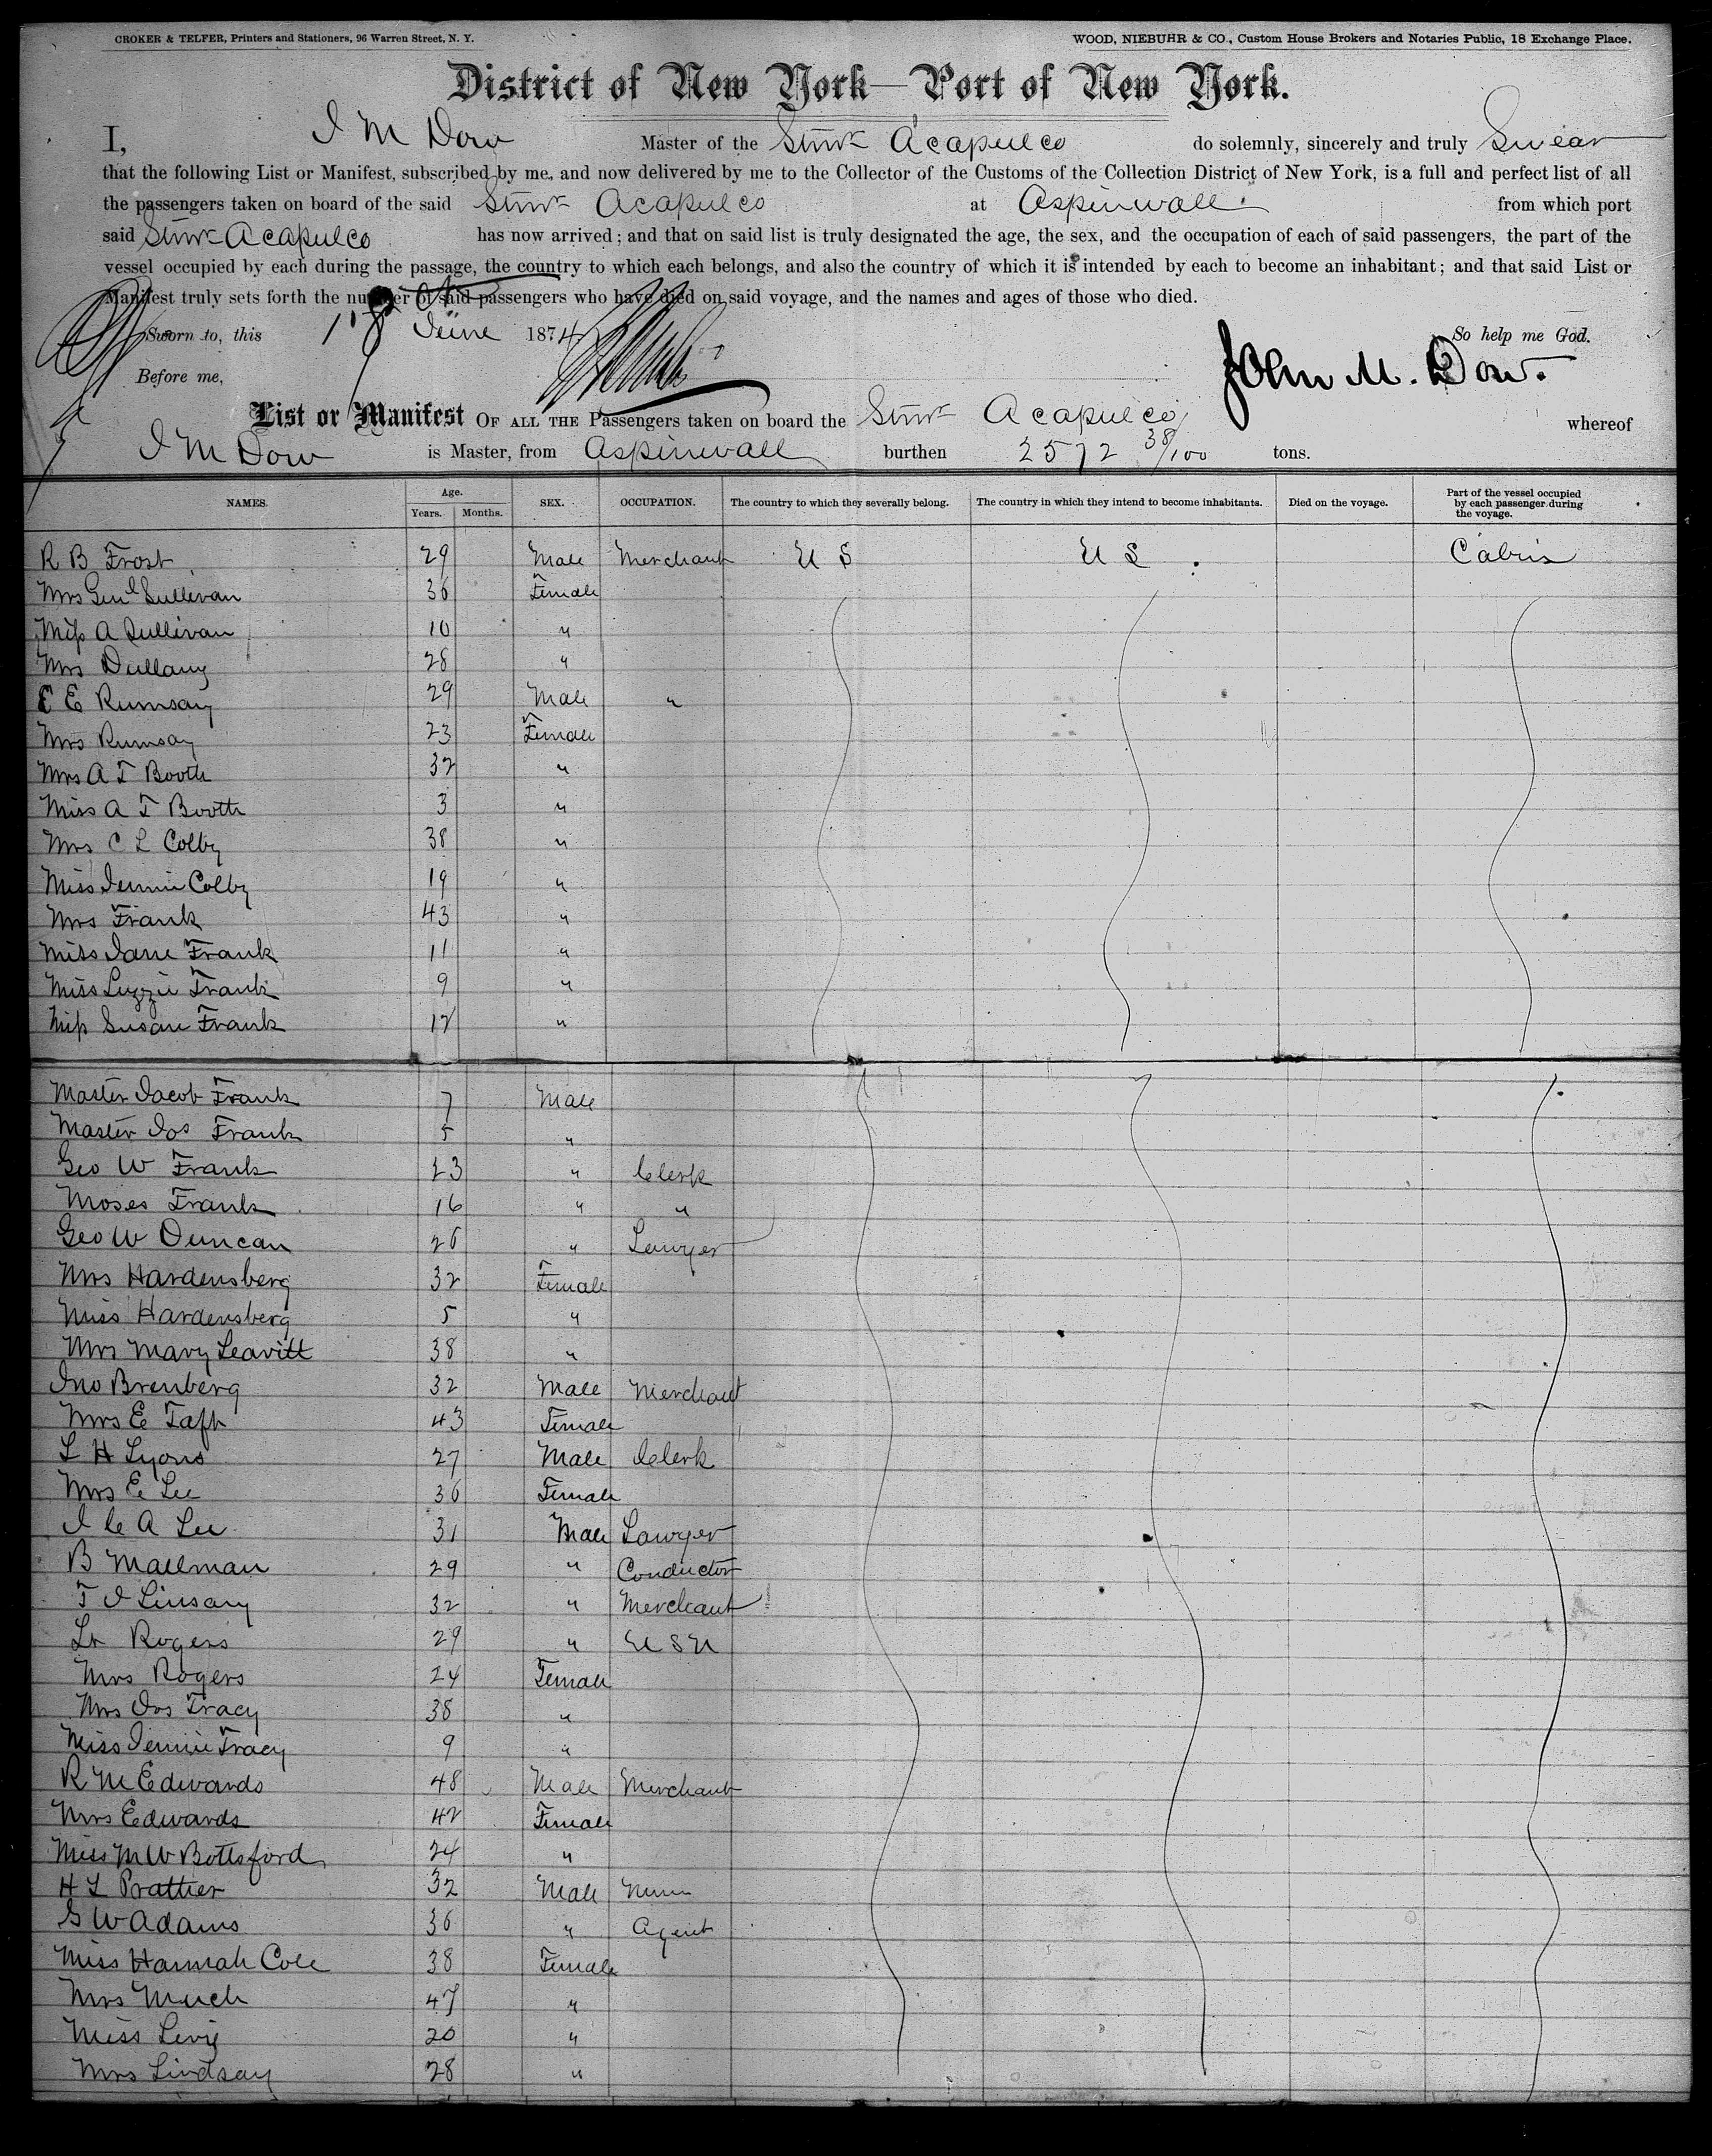 CROKER & TELFER, Printers and Stationers, 96 Warren Street, N. Y. WOOD, NIEBUHR & CO., Custom House Brokers and Notaries Public, 18 Exchange Place.
District of New York—Port of New York.
I, J M Dow Master of the Stmr Acapulco do solemnly, sincerely and truly Swear
that the following List or Manifest, subscribed by me, and now delivered by me to the Collector of the Customs of the Collection District of New York, is a full and perfect list of all
the passengers taken on board of the said Stmr Acapulco at Aspinwall from which port
said Stmr Acapulco has now arrived; and that on said list is truly designated the age, the sex, and the occupation of each of said passengers, the part of the
vessel occupied by each during the passage, the country to which each belongs, and also the country of which it is intended by each to become an inhabitant; and that said List or
Manifest truly sets forth the number of said passengers who have died on said voyage, and the names and ages of those who died.
Sworn to, this 18 June 1874 So help me God.
Before me, John M. Dow.
List or Manifest OF ALL THE Passengers taken on board the Stmr Acapulco whereof
J M Dow is Master, from Aspinwall burthen 2572 38/100 tons.
NAMES. Age. Years. Months. SEX. OCCUPATION. The country to which they severally belong. The country in which they intend to become inhabitants. Died on the voyage. Part of the vessel occupied by each passenger during the voyage.
R B Frost 29 Male Merchant U S U S Cabin
Mrs Genl Sullivan 36 Female
Miss A Sullivan 10 "
Mrs Dullany 28 "
E E Rumsay 29 Male "
Mrs Rumsay 23 Female
Mrs A T Booth 32 "
Miss A T Booth 3 "
Mrs C L Colby 38 "
Miss Jennie Colby 19 "
Mrs Frank 43 "
Miss Jane Frank 11 "
Miss Lizzie Frank 9 "
Miss Susan Frank 12 "
Master Jacob Frank 7 Male
Master Jos Frank 5 "
Geo W Frank 23 " Clerk
Moses Frank 16 " "
Geo W Duncan 26 " Lawyer
Mrs Hardensberg 32 Female
Miss Hardensberg 5 "
Mrs Mary Leavitt 38 "
Jno Brenberg 32 Male Merchant
Mrs E Taft 43 Female
L H Lyons 27 Male Clerk
Mrs E Lee 36 Female
J C A Lee 31 Male Lawyer
B Mallman 29 " Conductor
T J Linsay 32 " Merchant
Lt Rogers 29 " U S N
Mrs Rogers 24 Female
Mrs Jos Tracy 38 "
Miss Jennie Tracy 9 "
R M Edwards 48 Male Merchant
Mrs Edwards 42 Female
Miss M W Bottsford 24 "
H L Prattier 32 Male
G W Adams 36 " Agent
Miss Hannah Cole 38 Female
Mrs Much 47 "
Miss Levy 20 "
Mrs Lindsay 28 "